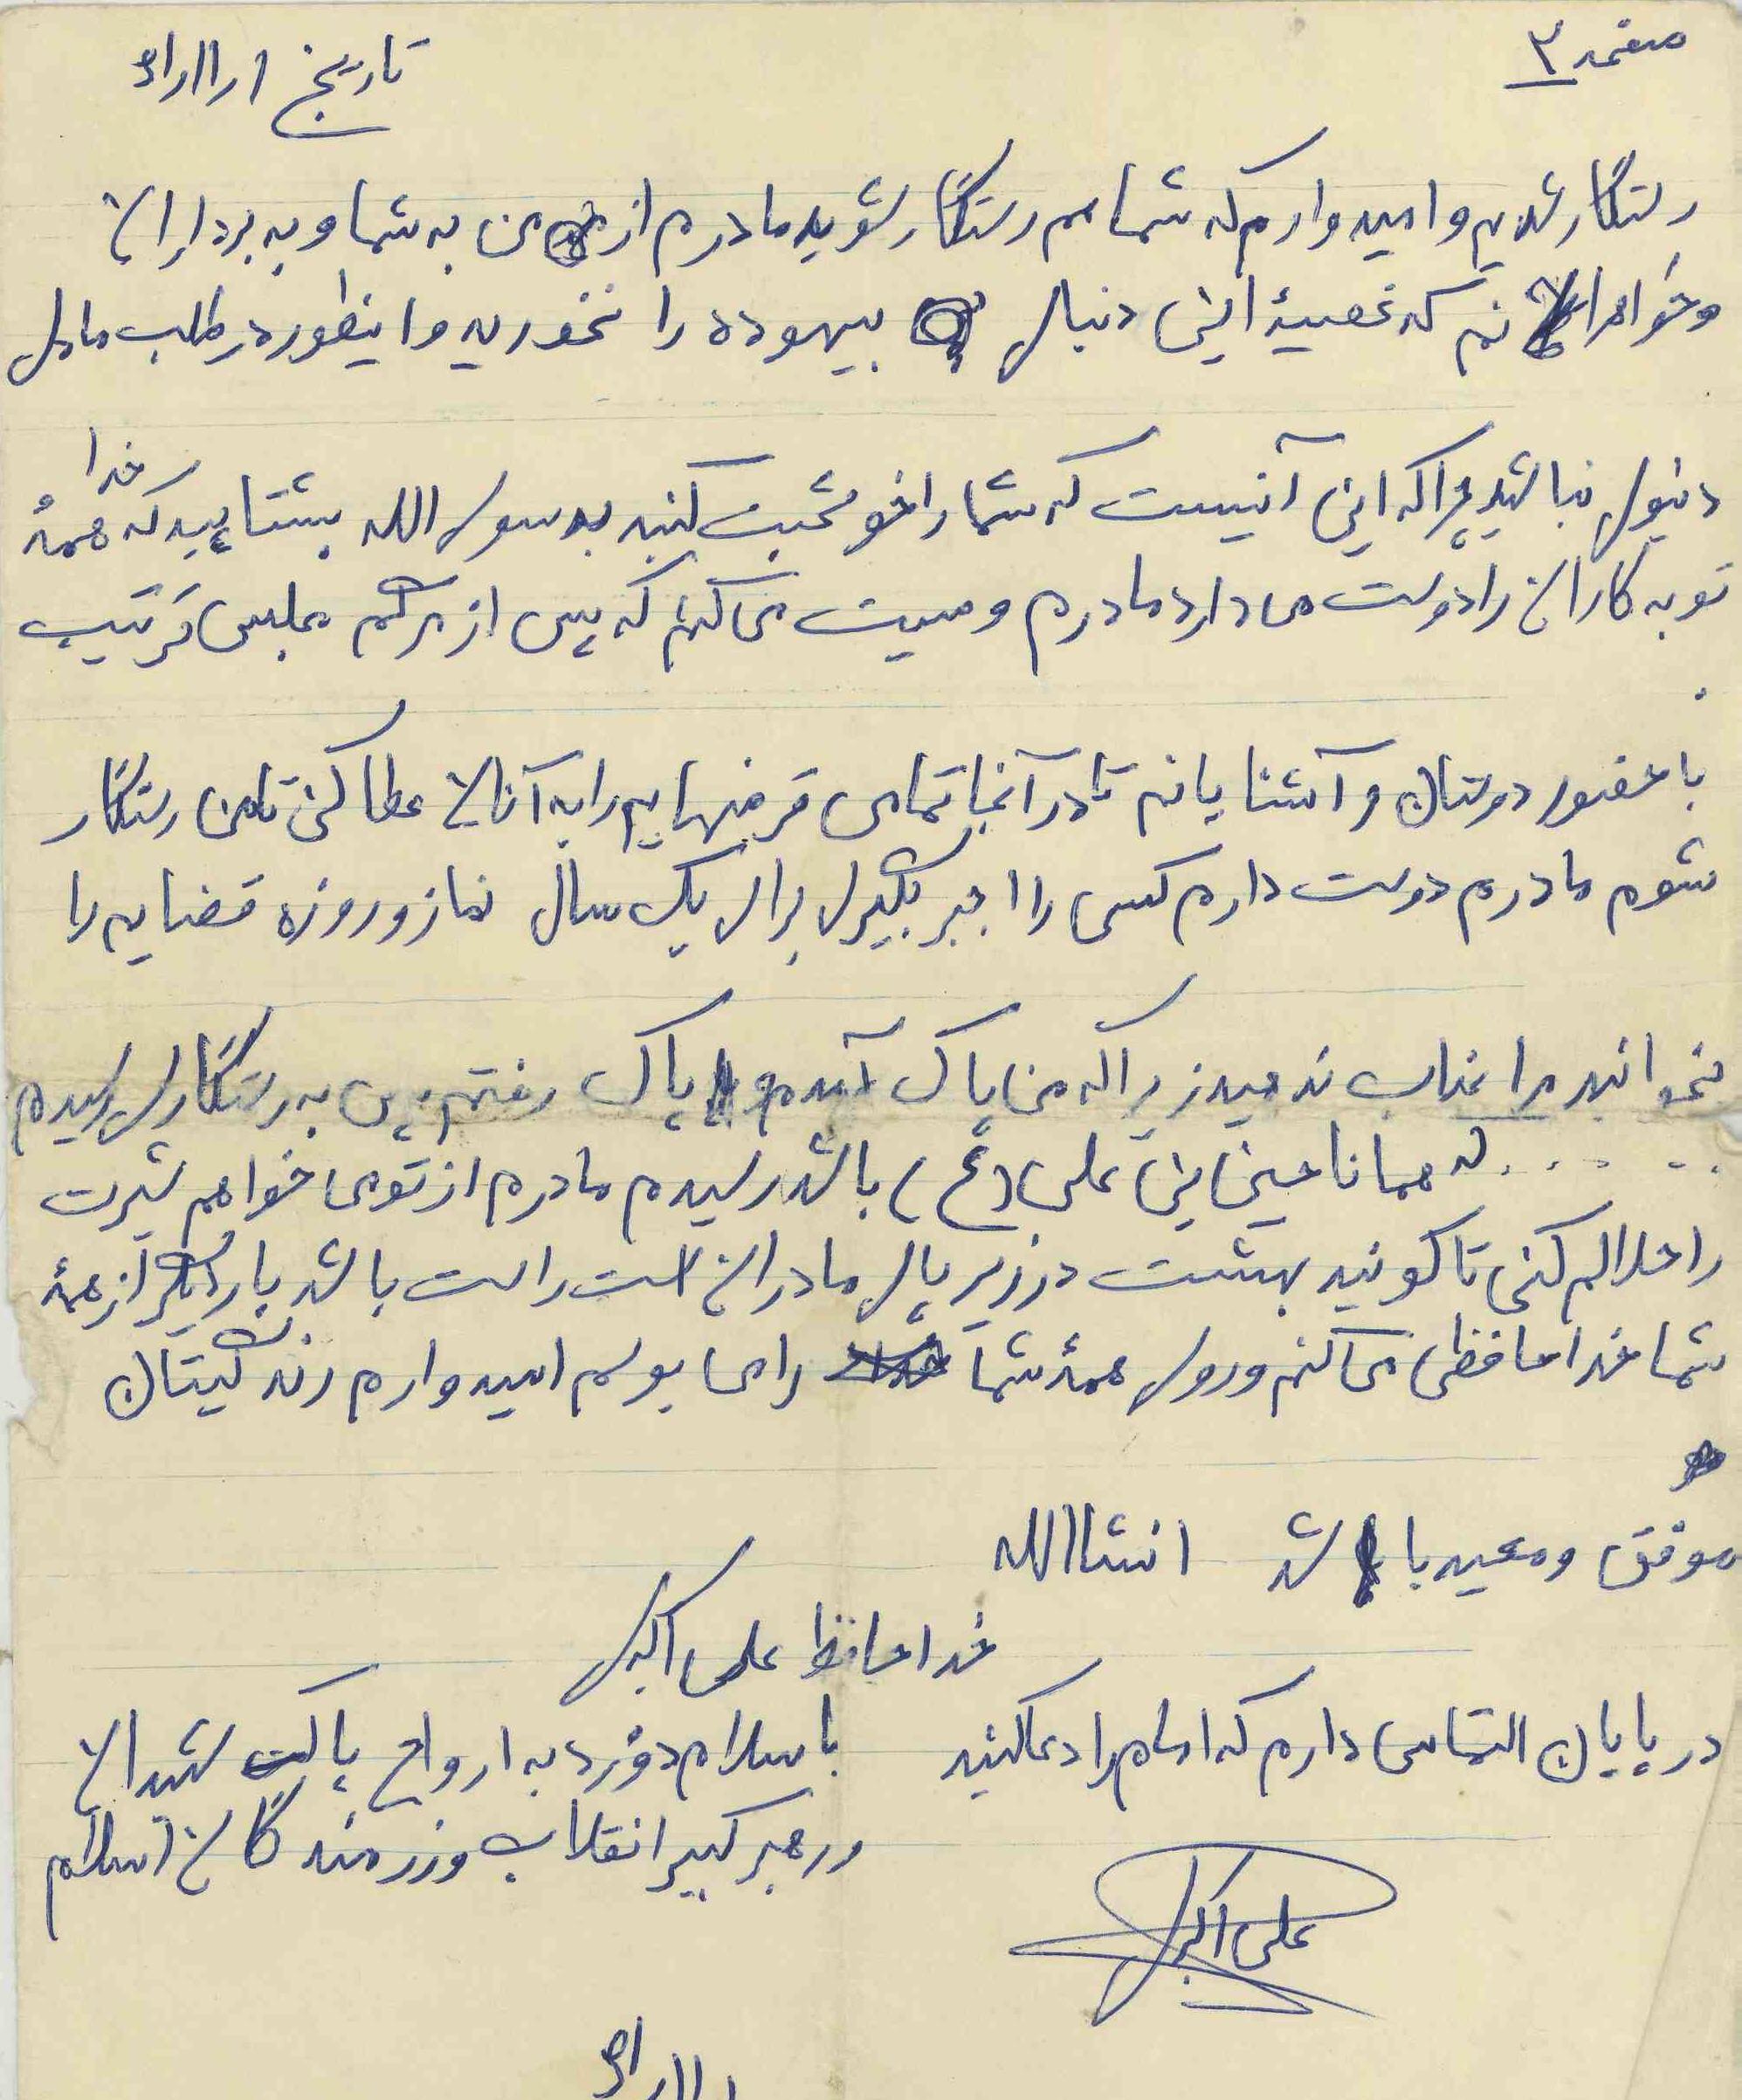 صفحه ۳
تاریخ ۱ر۱۱ر۶۱
رستگار شدیم و امیدوارم که شما هم رستگار شوید مادرم از من به شما و به برداران
و خواهرانم که غصیهٔ این دنیای بیهوده را نخورید و اینطور در طلب مادی
دنیوی نباشید چرا که این آنیست که شما را خوشحبت کند بسوی الله بشتابید که خدا همهٔ
توبه کاران را دوست می دارد مادرم وصیت می کنم که پس از مرگم مجلسی ترتیب
با حضور دوستان و آشنایانم تا در آنجا تمامی قرضهایم را به آنان عطا کنی تا من رستگار
شوم مادرم دوست دارم کسی را اجیر بگیری برای یک سال نماز و روزه قضایم را
بخوانید مرا عذاب ندهید زیرا که من پاک آمدم و پاک رفتم پس به رستگاری رسیدم
..... که همانا حسین ابن علی (ع) باشد رسیدم مادرم از تو می خواهم شیرت
را حلالم کنی تا گویند بهشت در زیر پای مادران است راست باشد بار دیگر از همهٔ
شما خداحافظی می کنم و روی همهٔ شما را می بوسم امیدوارم زندگیتان
موفق و معید باشد انشاالله
خداحافظ علی اکبر
در پایان التماس دارم که امام را دعا کنید
با سلام و درود به ارواح پاک شهیدان
و رهبر کبیر انقلاب و رزمندگان اسلام
علی اکبر
۱ر۱۱ر۶۱